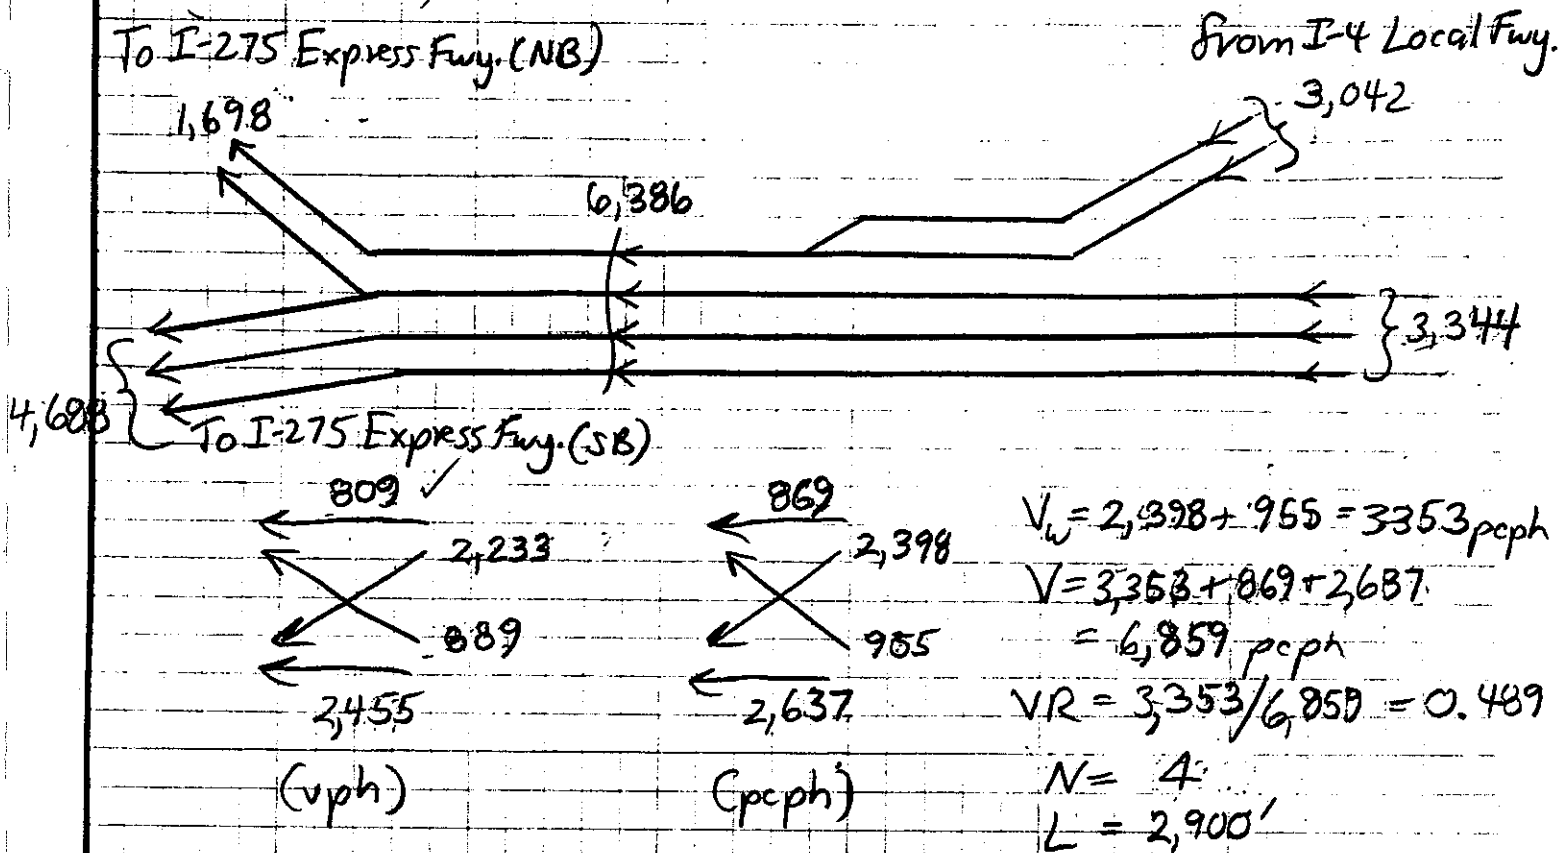 To I-275 Express Fwy. (NB)
from I-4 Local Fwy.
1,698
3,042
6,386
3,344
4,688
To I-275 Express Fwy. (SB)
809 ✓
2,233
889
2,455
(vph)
869
2,398
955
2,637
(pcph)
Vw = 2,398 + 955 = 3353 pcph
V = 3,353 + 869 + 2,637
= 6,859 pcph
VR = 3,353/6,859 = 0.489
N = 4
L = 2,900'